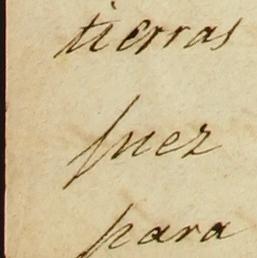 tierras
juez
para